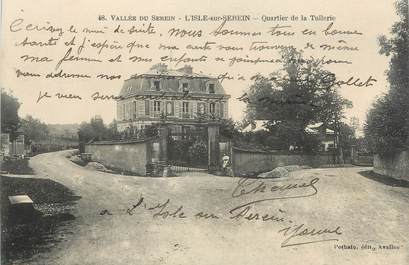 48. VALLÉE DU SEREIN - L'ISLE-sur-SEREIN - Quartier de la Tuilerie
Écrivez moi de suite, nous sommes tous en bonne
santé et j'espère que ma carte vous trouvera de même
ma femme et mes enfants se joignent à moi pour
vous adresser nos
je viens
Collet
à L'Isle sur Serein,
Yonne
Pothain, édit., Avallon